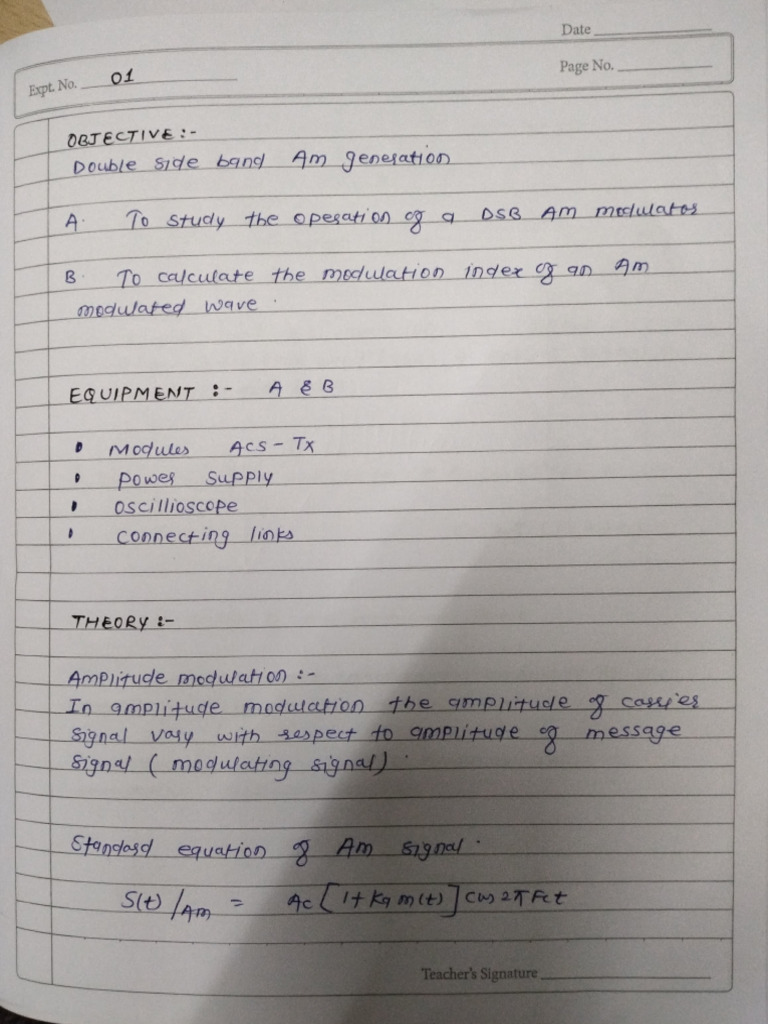 Date
Expt. No. 01
Page No.
OBJECTIVE :-
Double side band Am generation
A. To study the operation of a DSB AM modulator
B. To calculate the modulation index of an Am
modulated wave.
EQUIPMENT :- A & B
• Modules ACS - Tx
• Power Supply
• Oscillioscope
• Connecting links
THEORY :-
Amplitude modulation :-
In amplitude modulation the amplitude of carrier
signal vary with respect to amplitude of message
signal ( modulating signal ) .
Standard equation of Am signal .
S(t) /Am = Ac [ 1 + Ka m(t) ] Cos 2π Fct
Teacher's Signature